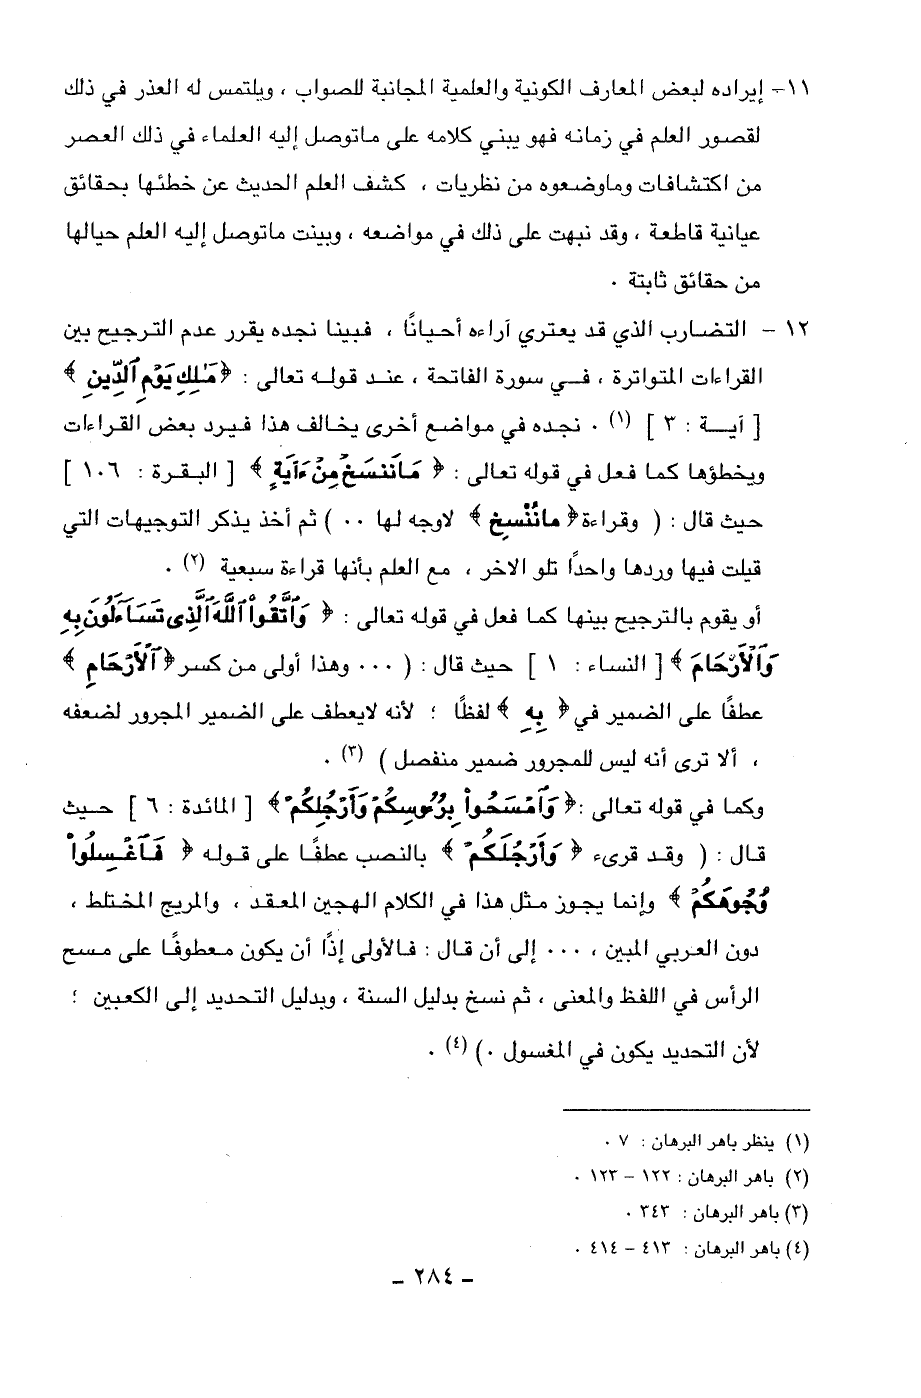 ١١- إيراده لبعض المعارف الكونية والعلمية المجانبة للصواب ، ويلتمس له العذر في ذلك
لقصور العلم في زمانه فهو يبني كلامه على ماتوصل إليه العلماء في ذلك العصر
من اكتشافات وماوضعوه من نظريات ، كشف العلم الحديث عن خطئها بحقائق
عيانية قاطعة ، وقد نبهت على ذلك في مواضعه ، وبينت ماتوصل إليه العلم حيالها
من حقائق ثابتة .
١٢ - التضارب الذي قد يعتري آراءه أحيانًا ، فبينا نجده يقرر عدم الترجيح بين
القراءات المتواترة ، في سورة الفاتحة ، عند قوله تعالى : ﴿مَٰلِكِ يَوْمِ ٱلدِّينِ ﴾
[ آية : ٣ ] (١) . نجده في مواضع أخرى يخالف هذا فيرد بعض القراءات
ويخطؤها كما فعل في قوله تعالى : ﴿ مَا نَنسَخْ مِنْ ءَايَةٍ ﴾ [ البقرة : ١٠٦ ]
حيث قال : ( وقراءة ﴿ ما نُنْسِخ ﴾ لاوجه لها ٠٠ ) ثم أخذ يذكر التوجيهات التي
قيلت فيها وردها واحدًا تلو الاخر ، مع العلم بأنها قراءة سبعية (٢) .
أو يقوم بالترجيح بينها كما فعل في قوله تعالى : ﴿ وَٱتَّقُوا۟ ٱللَّهَ ٱلَّذِى تَسَآءَلُونَ بِهِۦ
وَٱلْأَرْحَامَ ﴾ [ النساء : ١ ] حيث قال : ( ٠٠٠ وهذا أولى من كسر ﴿ ٱلْأَرْحَامِ ﴾
عطفًا على الضمير في ﴿ بِهِۦ ﴾ لفظًا ؛ لأنه لايعطف على الضمير المجرور لضعفه
، ألا ترى أنه ليس للمجرور ضمير منفصل ) (٣) .
وكما في قوله تعالى : ﴿ وَٱمْسَحُوا۟ بِرُءُوسِكُمْ وَأَرْجُلِكُمْ ﴾ [ المائدة : ٦ ] حيث
قال : ( وقد قرىء ﴿ وَأَرْجُلَكُمْ ﴾ بالنصب عطفًا على قوله ﴿ فَٱغْسِلُوا۟
وُجُوهَكُمْ ﴾ وإنما يجوز مثل هذا في الكلام الهجين المعقد ، والمريج المختلط ،
دون العربي المبين ، ٠٠٠ إلى أن قال : فالأولى إذًا أن يكون معطوفًا على مسح
الرأس في اللفظ والمعنى ، ثم نسخ بدليل السنة ، وبدليل التحديد إلى الكعبين ؛
لأن التحديد يكون في المغسول .) (٤) .
(١) ينظر باهر البرهان : ٧ .
(٢) باهر البرهان : ١٢٢ - ١٢٣ .
(٣) باهر البرهان : ٣٤٣ .
(٤) باهر البرهان : ٤١٣ - ٤١٤ .
- ٢٨٤ -